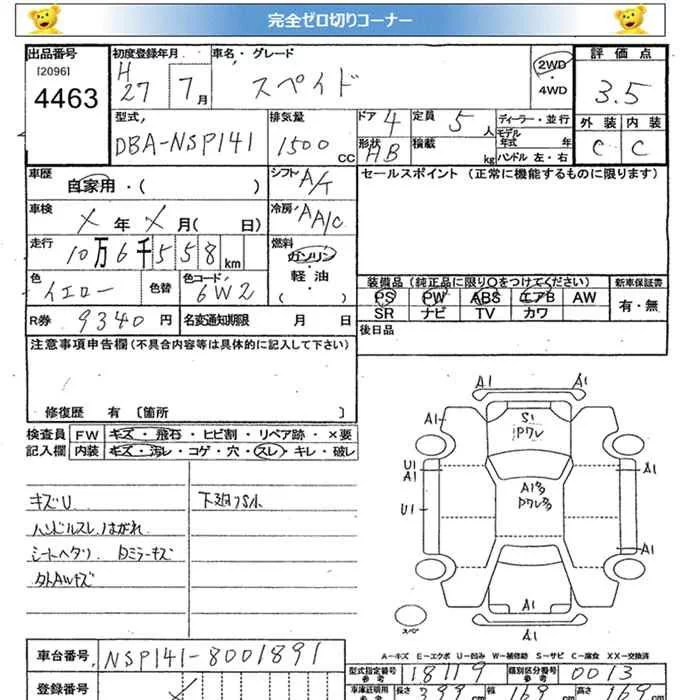 完全ゼロ切りコーナー
出品番号 初度登録年月 車名・グレード 2WD 評価点
[2096] H 27 7月 スペイド ・ 3.5
4463 4WD
型式 排気量 ドア 4 定員 5人 ディーラー・並行 外装 内装
DBA-NSP141 1500 CC 形状 HB 積載 kg モデル年式 年 C C
ハンドル 左・右
車歴 自家用・( ) シフト A/T セールスポイント (正常に機能するものに限ります)
車検 X年X月( 日) 冷房 AA/C
走行 10万6千558km 燃料 ガソリン
軽・油
( )
色 イエロー 色替 色コード 6W2 装備品 (純正品に限り○をつけてください) 新車保証書
PS PW ABS エアB AW 有・無
R券 9340円 名変通知期限 月 日 SR ナビ TV カワ
注意事項申告欄 (不具合内容等は具体的に記入して下さい) 後日品
修復歴 有 〔箇所 〕
検査員 FW キズ・飛石・ヒビ割・リペア跡・×要
記入欄 内装 キズ・汚レ・コゲ・穴・スレ・キレ・破レ
キズU 下廻フS小
ハンドルスレ、はがれ
シートヘタリ
A1 A1
A1 S1
Pワレ
U1 A1
A1
A1多
U1
A1
A1
A1
スペア
A-キズ E-エクボ U-凹み W-補修跡 S-サビ C-腐食 XX-交換済
車台番号 NSP141-8001891
型式指定番号 参考 18119 類別区分番号 参考 0013
登録番号 車庫証明用 参考 長さ cm 幅 169 cm 高さ cm